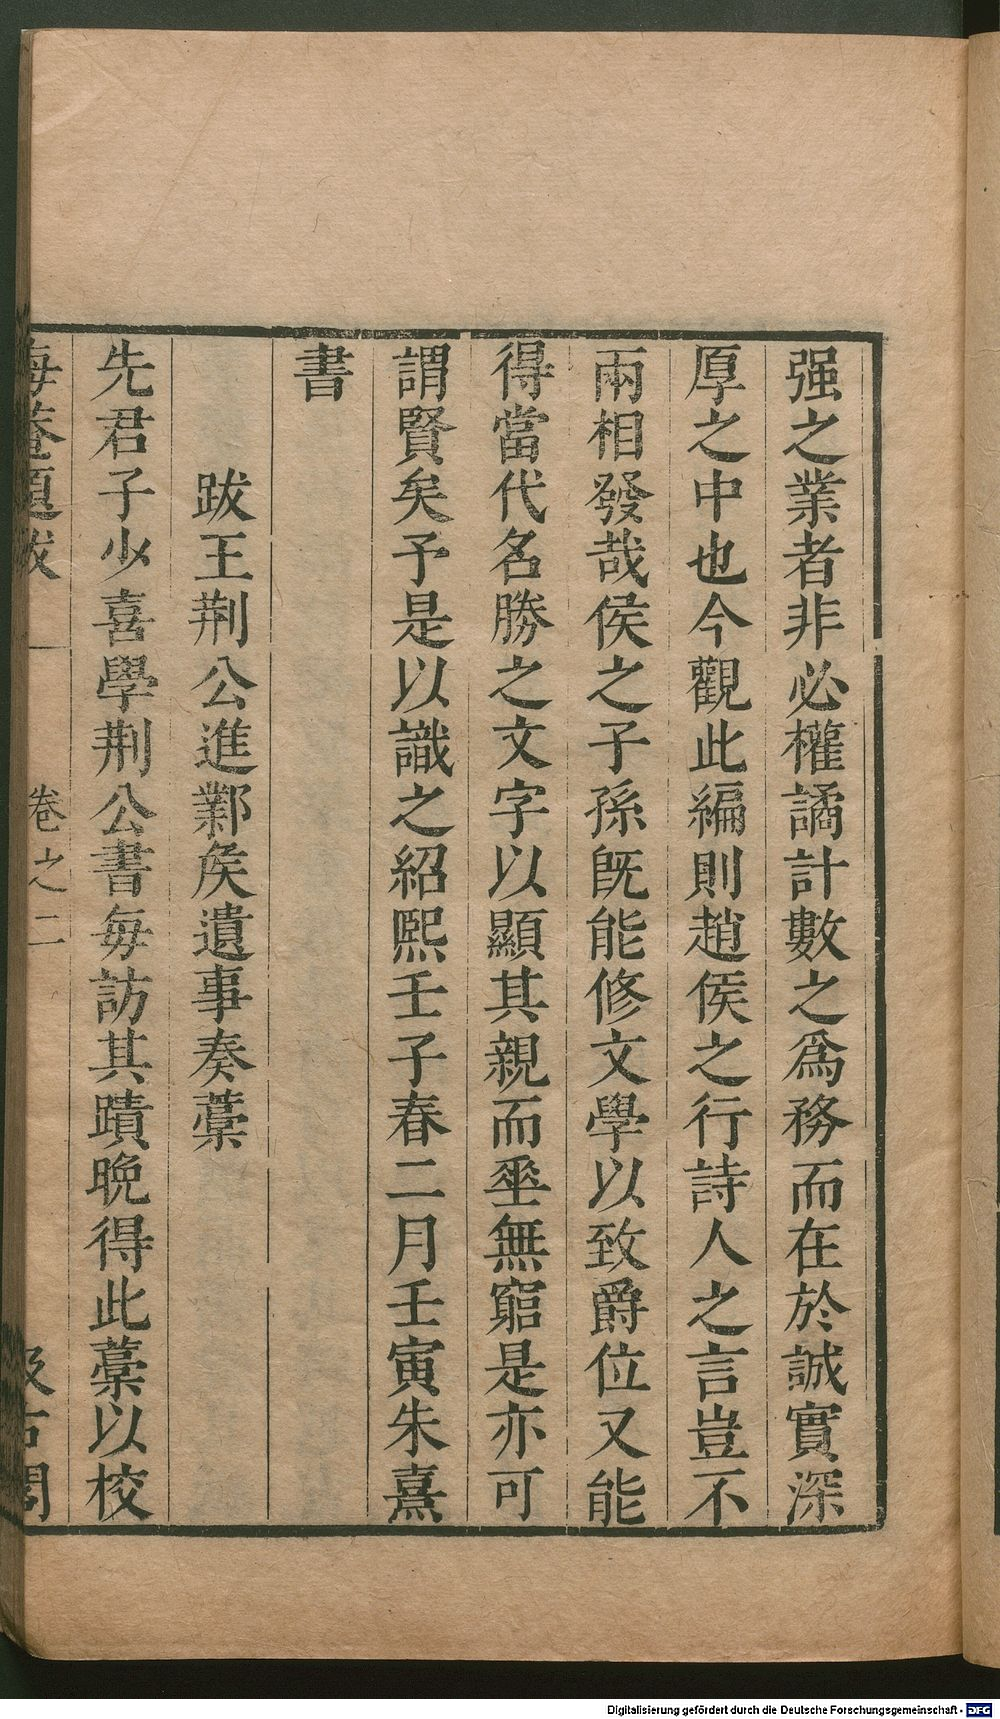 强之業者非必權譎計數之爲務而在於誠實深
厚之中也今觀此編則趙侯之行詩人之言豈不
兩相發哉侯之子孫旣能修文學以致爵位又能
得當代名勝之文字以顯其親而垩無窮是亦可
謂賢矣予是以識之紹熙壬子春二月壬寅朱熹
書
跋王荆公進鄴矦遺事奏藁
先君子少喜學荆公書每訪其蹟晩得此藁以校
海菴題跋
卷之二
汲古閣
Digitalisierung gefördert durch die Deutsche Forschungsgemeinschaft - DFG